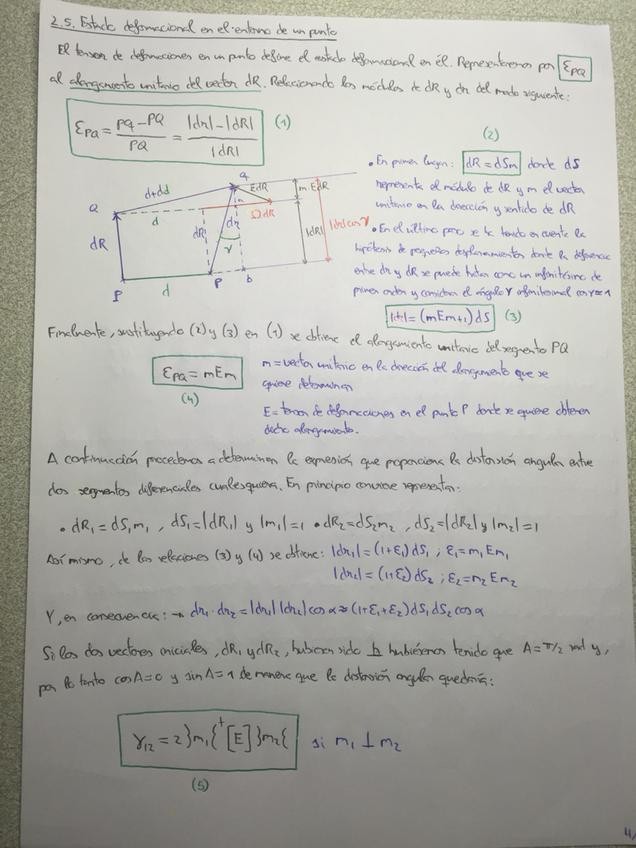 2.5. Estado deformacional en el entorno de un punto
El tensor de deformaciones en un punto define el estado deformacional en él. Representaremos por εPQ
al alargamiento unitario del vector dR. Relacionando los módulos de dR y dr del modo siguiente:
εPQ = (pq - PQ)/PQ = (|dr| - |dR|)/|dR| (1)
(2)
• En primer lugar: dR = dSm donde dS
representa el módulo de dR y m el vector
unitario en la dirección y sentido de dR
• En el último paso se ha tenido en cuenta la
hipótesis de pequeños desplazamientos donde la diferencia
entre dr y dR se puede tratar como un infinitésimo de
primer orden y considera el ángulo γ infinitesimal cosγ≈1
|+|= (mEm+1)dS (3)
q
d+dd
EdR
m EdR
Q
d
ΩdR
dR
dR
dr
γ
|dR|
|dr|cosγ
P
d
p
b
Finalmente, sustituyendo (2) y (3) en (1) se obtiene el alargamiento unitario del segmento PQ
εPQ = mEm
(4)
m = vector unitario en la dirección del alargamiento que se
quiere determinar
E = tensor de deformaciones en el punto P donde se quiere obtener
dicho alargamiento.
A continuación procedemos a determinar la expresión que proporciona la distorsión angular entre
dos segmentos diferenciales cualesquiera. En principio conviene representar:
• dR1 = dS1m1, dS1=|dR1| y |m1|=1 • dR2=dS2m2, dS2=|dR2| y |m2|=1
Así mismo, de las relaciones (3) y (4) se obtiene: |dr1| = (1+ε1)dS1; ε1=m1Em1
|dr2| = (1+ε2)dS2; ε2=m2Em2
Y, en consecuencia: → dr1·dr2=|dr1||dr2|cosα≈(1+ε1+ε2)dS1dS2cosα
Si los dos vectores iniciales, dR1 y dR2, hubieran sido hubiésemos tenido que A=π/2 rad y,
por lo tanto cosA=0 y sinA=1 de manera que la distorsión angular quedaría:
γ12 = 2}m1{ᵗ[E]}m2{ si m1 ⊥ m2
(5)
4/